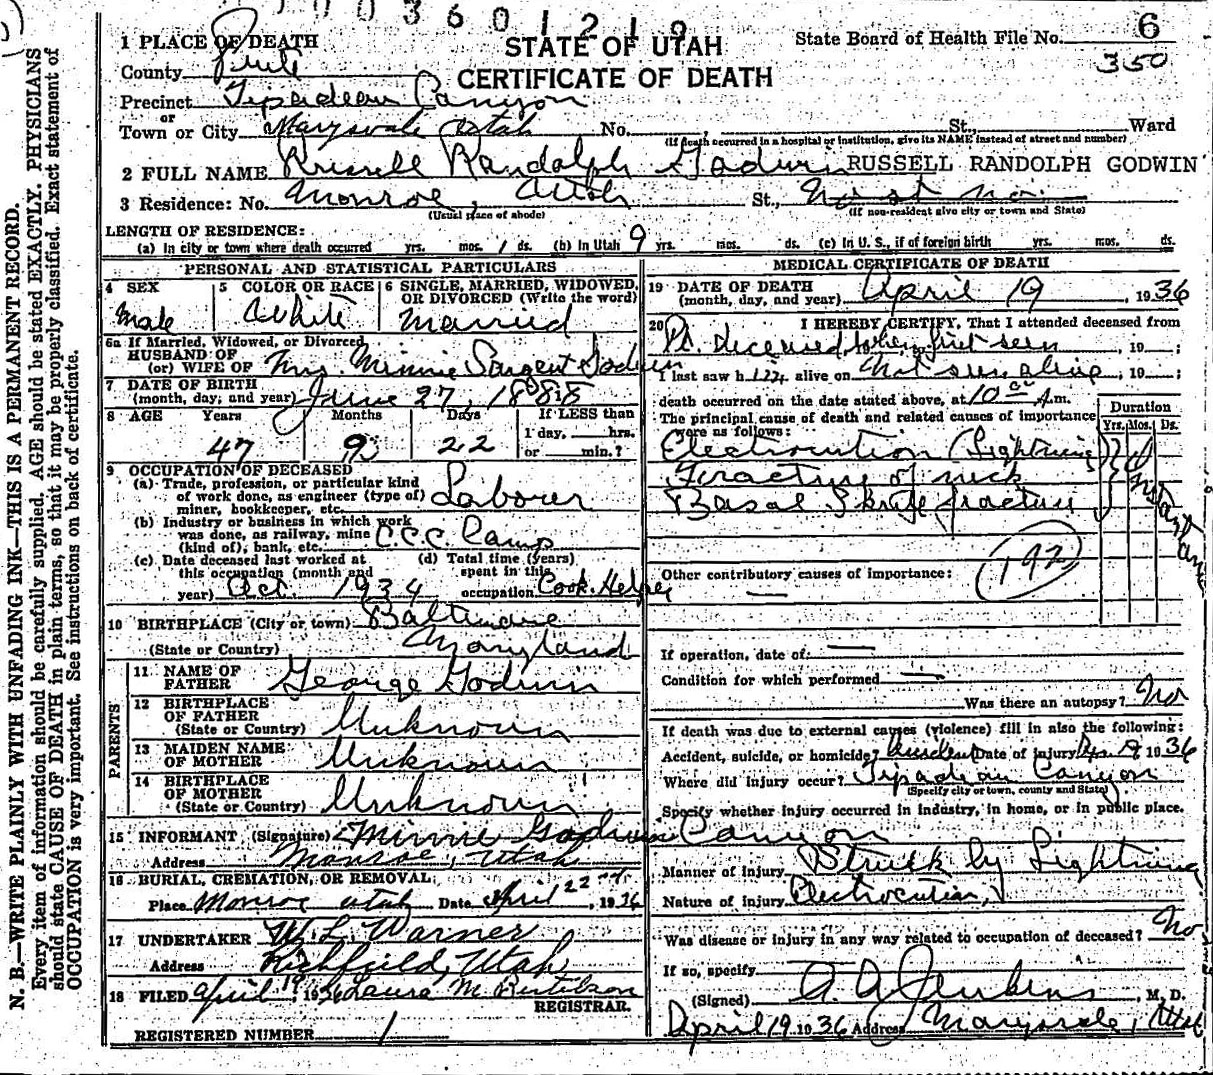 0 0 3 6 0 1 2 1 9
1 PLACE OF DEATH
STATE OF UTAH
CERTIFICATE OF DEATH
State Board of Health File No. 6
350
County Piute
Precinct Canyon
or
Town or City Marysvale Utah No. , St., Ward
(If death occurred in a hospital or institution, give its NAME instead of street and number)
2 FULL NAME Russell Randolph Godwin RUSSELL RANDOLPH GODWIN
3 Residence: No. Monroe, Utah St.,
(Usual place of abode) (If non-resident give city or town and State)
LENGTH OF RESIDENCE:
(a) In city or town where death occurred yrs. mos. 1 ds. (b) In Utah 9 yrs. mos. ds. (c) In U. S., if of foreign birth yrs. mos. ds.
PERSONAL AND STATISTICAL PARTICULARS
4 SEX
Male
5 COLOR OR RACE
White
6 SINGLE, MARRIED, WIDOWED, OR DIVORCED (Write the word)
Married
6a If Married, Widowed, or Divorced
HUSBAND OF
(or) WIFE OF Mrs. Minnie Sargent Godwin
7 DATE OF BIRTH
(month, day, and year) June 27, 1888
8 AGE Years Months Days If LESS than
47 9 22 1 day, hrs.
or min.?
9 OCCUPATION OF DECEASED
(a) Trade, profession, or particular kind
of work done, as engineer (type of)
miner, bookkeeper, etc. Labourer
(b) Industry or business in which work
was done, as railway, mine
(kind of), bank, etc. C.C.C. Camp
(c) Date deceased last worked at
this occupation (month and
year) Oct. 1934
(d) Total time (years)
spent in this
occupation Cook. Helper
10 BIRTHPLACE (City or town) Baltimore
(State or Country) Maryland
PARENTS
11 NAME OF
FATHER George Godwin
12 BIRTHPLACE
OF FATHER
(State or Country) Unknown
13 MAIDEN NAME
OF MOTHER Unknown
14 BIRTHPLACE
OF MOTHER
(State or Country) Unknown
15 INFORMANT (Signature) Minnie Godwin
Address Monroe, Utah
16 BURIAL, CREMATION, OR REMOVAL
Place Monroe Utah Date April 22nd, 1936
17 UNDERTAKER W. L. Warner
Address Richfield, Utah
18 FILED April 19 1936 Laura M. Bertelson
REGISTRAR.
REGISTERED NUMBER 1
MEDICAL CERTIFICATE OF DEATH
19 DATE OF DEATH
(month, day, and year) April 19, 1936
20 I HEREBY CERTIFY, That I attended deceased from
Pt. deceased when first seen, 19 ;
I last saw him alive on Not seen alive, 19 ;
death occurred on the date stated above, at 10 A.m.
The principal cause of death and related causes of importance
were as follows:
Duration
Yrs. Mos. Ds.
Electrocution (Lightning)
Fracture of neck
Basal Skull fracture
Instantane
192
Other contributory causes of importance:
—
If operation, date of: —
Condition for which performed —
Was there an autopsy? No
If death was due to external causes (violence) fill in also the following:
Accident, suicide, or homicide? Accident Date of injury Ap. 19 1936
Where did injury occur? Canyon
(Specify city or town, county and State)
Specify whether injury occurred in industry, in home, or in public place.
Canyon
Manner of injury Struck by Lightning
Nature of injury Electrocution
Was disease or injury in any way related to occupation of deceased? No
If so, specify
(Signed) A. A. Jenkins, M. D.
April 19 1936 Address Marysvale, Utah
N. B.—WRITE PLAINLY WITH UNFADING INK—THIS IS A PERMANENT RECORD.
Every item of information should be carefully supplied. AGE should be stated EXACTLY. PHYSICIANS
should state CAUSE OF DEATH in plain terms, so that it may be properly classified. Exact statement of
OCCUPATION is very important. See instructions on back of certificate.